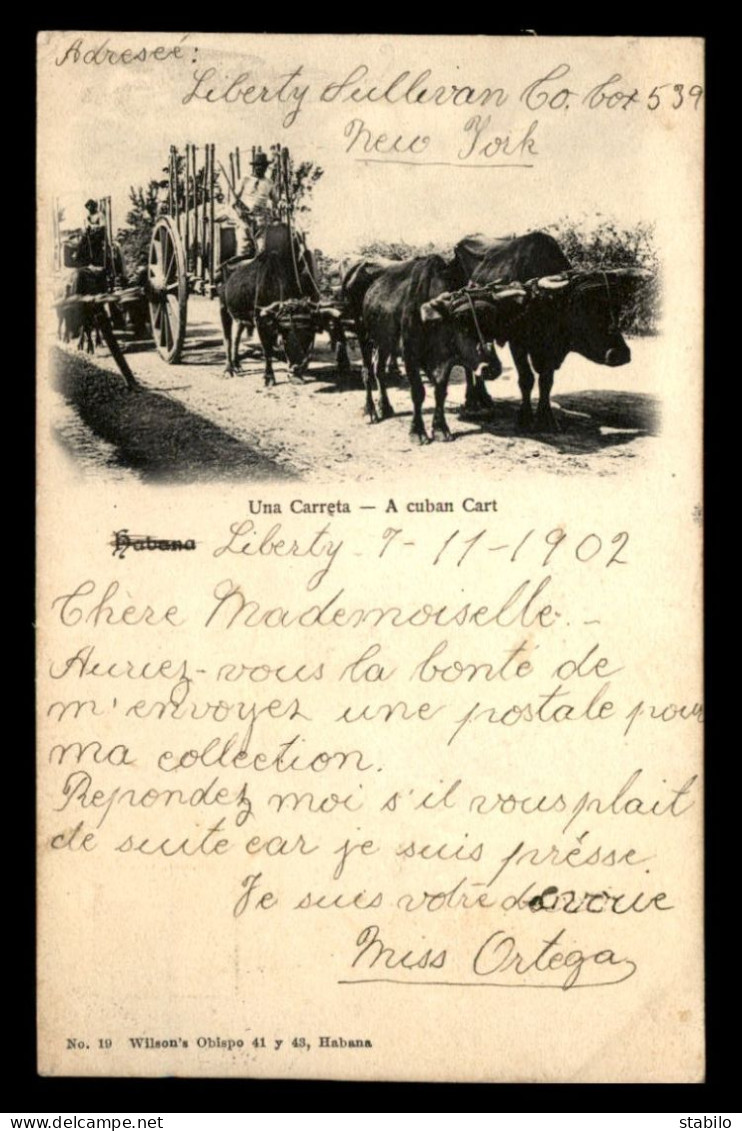 Adreseé:
Liberty Sullivan Co. Box 539
New York
Una Carreta — A cuban Cart
Habana Liberty - 7-11-1902
Chère Mademoiselle -
Auriez-vous la bonté de
m'envoyez une postale pour
ma collection.
Repondez moi s'il vous plait
de suite car je suis présse.
Je suis votre
Miss Ortega
No. 19 Wilson's Obispo 41 y 43, Habana
stabilo
DELCAMPE.NET